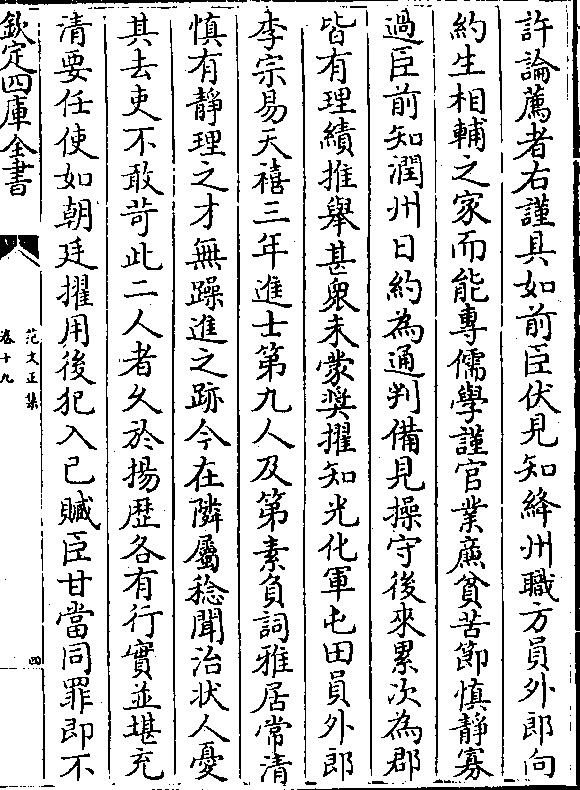 許論薦者右謹具如前臣伏見知絳州職方員外郎向
約生相輔之家而能專儒學謹官業廉貧苦節慎靜寡
過臣前知潤州日約為通判備見操守後來累次為郡
皆有理績推舉甚衆未蒙奨擢知光化軍屯田員外郎
李宗易天禧三年進士第九人及第素負詞雅居常清
慎有靜理之才無躁進之跡今在隣屬稔聞治狀人憂
其去吏不敢苛此二人者乆於揚歴各有行實並堪充
清要任使如朝廷擢用後犯入已贓臣甘當同罪即不
欽定四庫全書
范文正集
卷十九
四